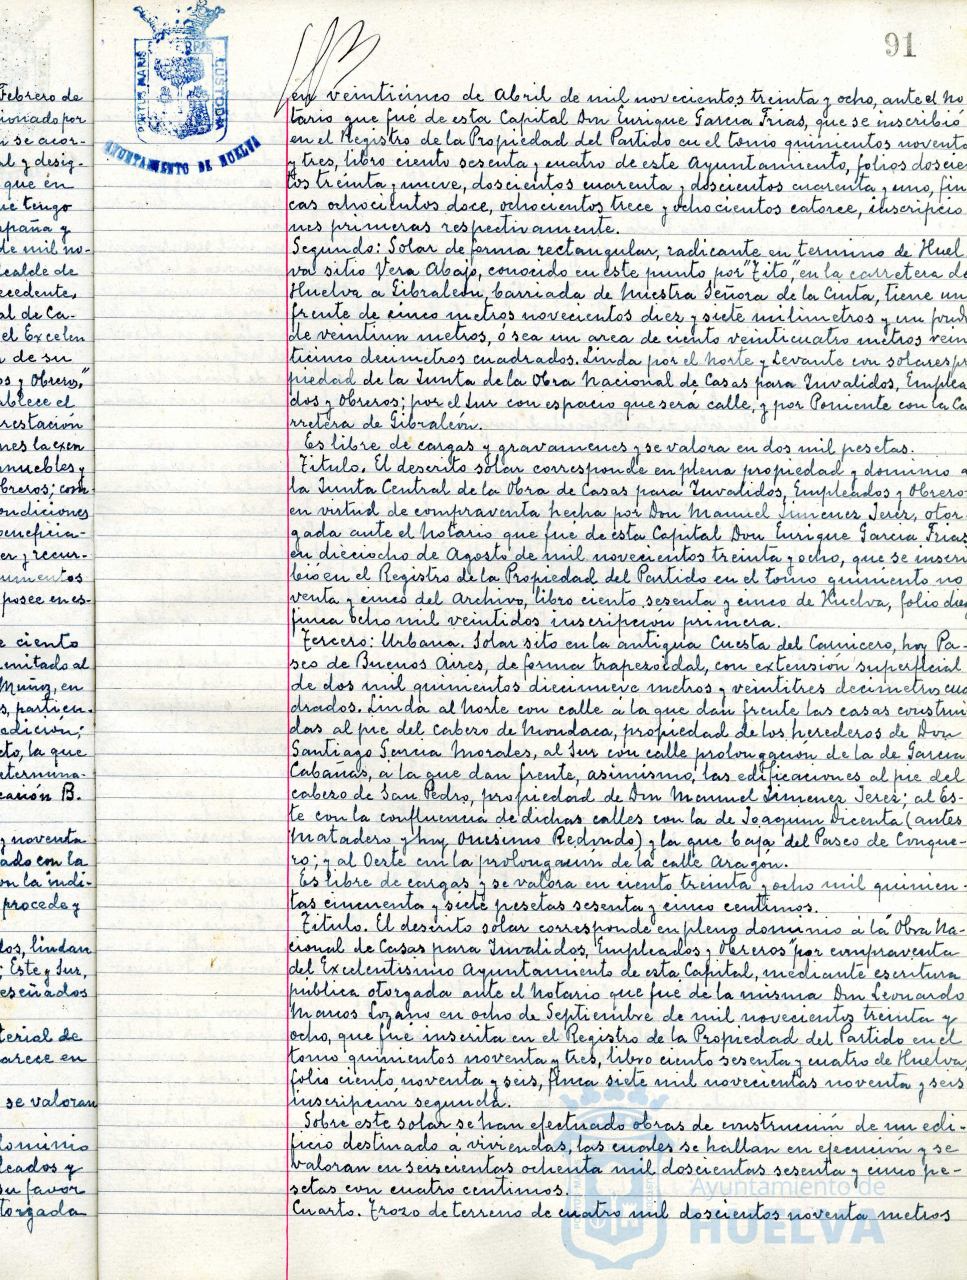 Febrero de
ionado por
n se acor-
al y desig-
que en
ue tengo
spaña y
de mil no-
calde de
ecedente,
al de Ca-
el Excelen
n de su
os y Obreros,"
ablece el
restación
nes la exen
nmuebles y
breros; com-
ondiciones
beneficia-
er y recur-
umentos
posee en es-
e ciento
imitado al
Muñoz, en
s, partien-
adición;
cto, la que
etermina-
cación B.
y noventa
ado con la
on la indi-
procede y
dos, lindan
; Este y Sur,
eseñados
terial de
arece en
se valoran
dominio
leados y
su favor
torgada
PORTUS MARIS ET TERRIS CUSTODIA
AYUNTAMIENTO DE HUELVA
91
en veinticinco de Abril de mil novecientos treinta y ocho, ante el No
tario que fué de esta Capital Don Enrique Garcia Frias, que se inscribió
en el Registro de la Propiedad del Partido en el tomo quinientos noventa
y tres, libro ciento sesenta y cuatro de este Ayuntamiento, folios doscien
tos treinta y nueve, doscientos cuarenta y doscientos cuarenta y uno, fin
cas ochocientos doce, ochocientos trece y ochocientos catorce, inscripcio
nes primeras respectivamente.
Segundo: Solar de forma rectangular, radicante en termino de Huel
va sitio Vera Abajo, conocido en este punto por "Tito", en la carretera de
Huelva a Gibraleón, barriada de Nuestra Señora de la Cinta, tiene un
frente de cinco metros novecientos diez y siete milimetros y un fondo
de veintiun metros, ó sea un area de ciento veinticuatro metros vein
ticinco decimetros cuadrados. Linda por el Norte y Levante con solares pr
piedad de la Junta de la Obra Nacional de Casas para Invalidos, Emplea
dos y Obreros; por el Sur con espacio que será calle, y por Poniente con la Ca
rretera de Gibraleón.
Es libre de cargas y gravamenes y se valora en dos mil pesetas.
Titulo. El descrito solar corresponde en plena propiedad y dominio a
la Junta Central de la Obra de Casas para Invalidos, Empleados y Obrero
en virtud de compraventa hecha por Don Manuel Jimenez Jerez, otor
gada ante el Notario que fué de esta Capital Don Enrique Garcia Frias
en dieciocho de Agosto de mil novecientos treinta y ocho, que se inscri
bió en el Registro de la Propiedad del Partido en el tomo quiniento no
venta y cinco del Archivo, libro ciento sesenta y cinco de Huelva, folio diez
finca ocho mil veintidos inscripcion primera.
Tercero: Urbana. Solar sito en la antigua Cuesta del Carnicero, hoy Pa-
seo de Buenos Aires, de forma trapezoidal, con extensión superficial
de dos mil quinientos diecinueve metros y veintitres decimetros cua
drados. Linda al Norte con calle á la que dan frente las casas construi
das al pie del cabezo de Mondaca, propiedad de los herederos de Don
Santiago Garcia Morales, al Sur con calle prolongación de la de Garcia
Cabañas, á la que dan frente, asimismo, las edificaciones al pie del
cabezo de San Pedro, propiedad de Don Manuel Jimenez Jerez; al Es-
te con la confluencia de dichas calles con la de Joaquin Dicenta (antes
Matadero y hoy Onesimo Redondo) y la que baja del Paseo de Conque-
ro; y al Oeste con la prolongacion de la calle Aragón.
Es libre de cargas y se valora en ciento treinta y ocho mil quinien-
tas cincuenta y siete pesetas sesenta y cinco centimos.
Titulo. El descrito solar corresponde en pleno dominio á la "Obra Na-
cional de Casas para Invalidos, Empleados y Obreros" por compraventa
del Excelentisimo Ayuntamiento de esta Capital, mediante escritura
pública otorgada ante el Notario que fué de la misma Don Leonardo
Marcos Lozano en ocho de Septiembre de mil novecientos treinta y
ocho, que fué inscrita en el Registro de la Propiedad del Partido en el
tomo quinientos noventa y tres, libro ciento sesenta y cuatro de Huelva,
folio ciento noventa y seis, finca siete mil novecientas noventa y seis
inscripcion segunda.
Sobre este solar se han efectuado obras de construcción de un edi-
ficio destinado á viviendas, las cuales se hallan en ejecución y se
valoran en seiscientas ochenta mil doscientas sesenta y cinco pe-
setas con cuatro centimos.
Cuarto. Trozo de terreno de cuatro mil doscientos noventa metros
Ayuntamiento de
HUELVA